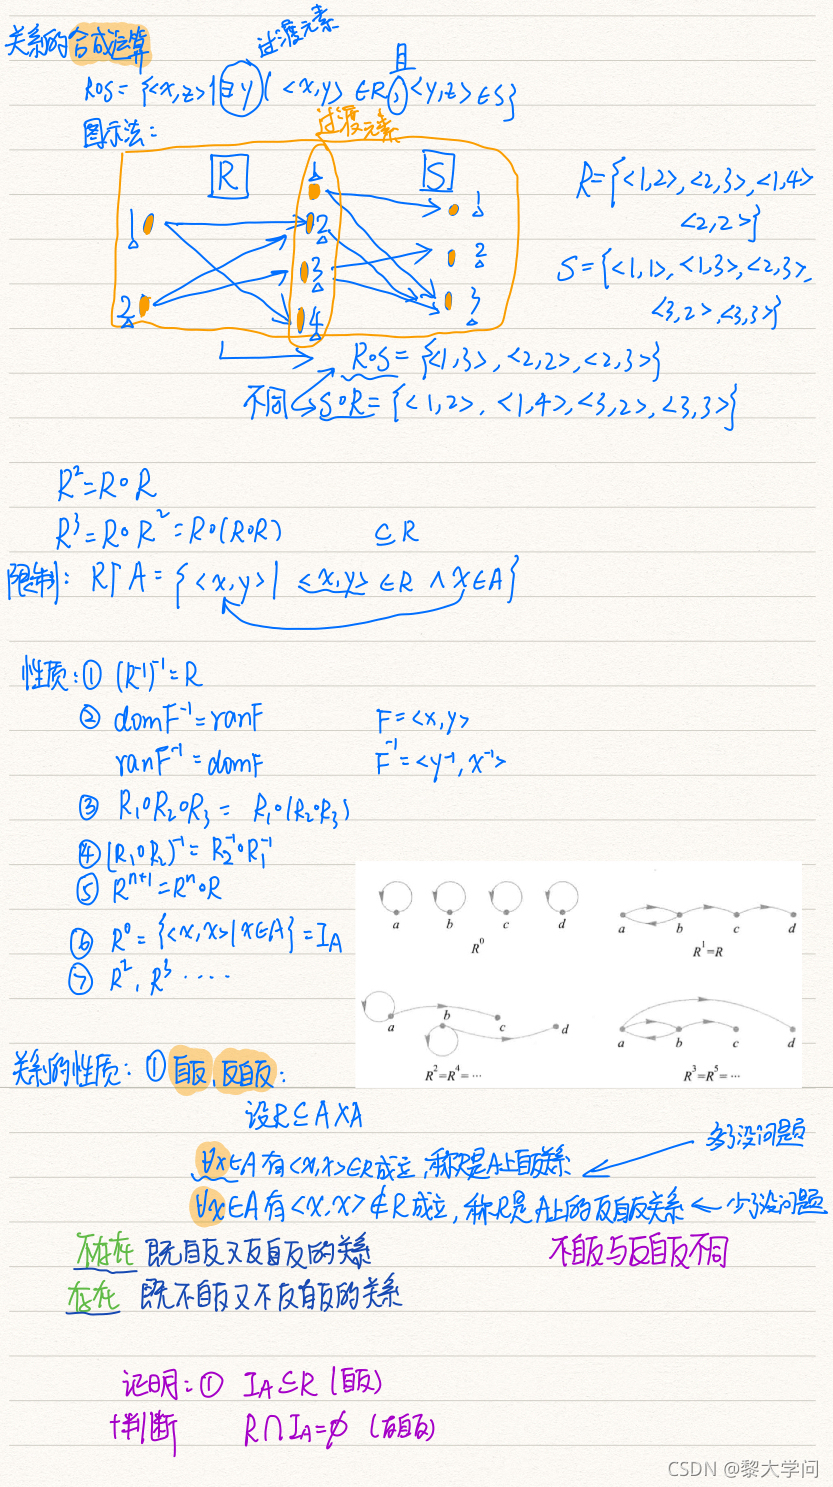 过渡元素
关系的合成运算
且
R∘S={<x,z>|∃y(<x,y>∈R,<y,z>∈S}
图示法:
过渡元素
R
S
1
1
1
2
2
3
2
2
4
3
R={<1,2>,<2,3>,<1,4>
<2,2>}
S={<1,1>,<1,3>,<2,3>,
<3,2>,<3,3>}
R∘S={<1,3>,<2,2>,<2,3>}
不同 S∘R={<1,2>,<1,4>,<3,2>,<3,3>}
R²=R∘R
R³=R∘R²=R∘(R∘R) ⊆R
限制: R↾A={<x,y>|<x,y>∈R∧x∈A}
性质:① (R⁻¹)⁻¹=R
② domF⁻¹=ranF F=<x,y>
ranF⁻¹=domF F⁻¹=<y⁻¹,x⁻¹>
③ R₁∘R₂∘R₃=R₁∘(R₂∘R₃)
④ (R₁∘R₂)⁻¹=R₂⁻¹∘R₁⁻¹
⑤ Rⁿ⁺¹=Rⁿ∘R
⑥ R⁰={<x,x>|x∈A}=I_A
⑦ R²,R³.....
a b c d
R⁰
a b c d
R¹=R
a b c d
R²=R⁴=⋯
a b c d
R³=R⁵=⋯
关系的性质:①自反、反自反:
设R⊆A×A
多了没问题
∀x∈A有<x,x>∈R成立,称R是A上自反关系
∀x∈A有<x,x>∉R成立,称R是A上的反自反关系 ← 少了没问题
不存在 既自反又反自反的关系 不自反与反自反不同
存在 既不自反又不反自反的关系
证明:① I_A⊆R(自反)
判断 R∩I_A=∅(反自反)
CSDN @黎大学问